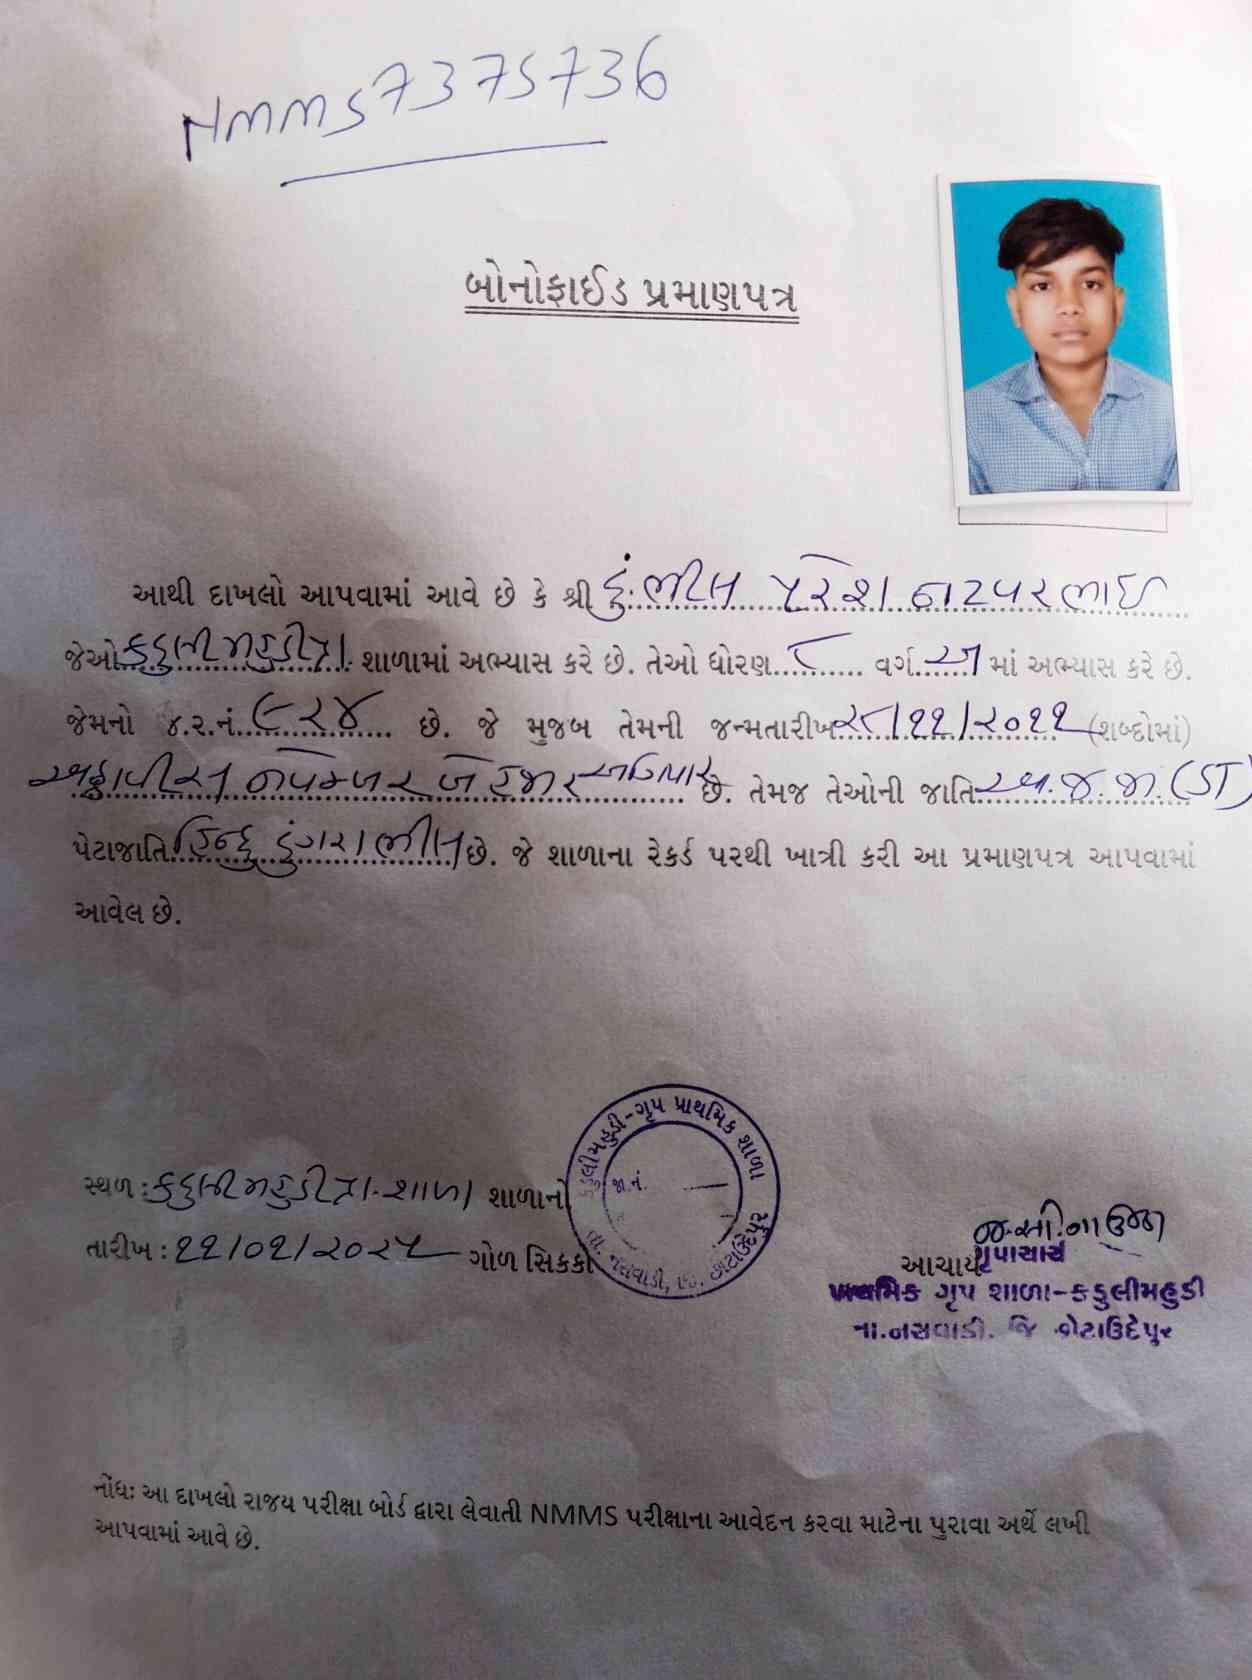 NMMS7375736
બોનોફાઈડ પ્રમાણપત્ર
આથી દાખલો આપવામાં આવે છે કે શ્રી ડું.ભીલ પરેશ નટવરભાઇ
જેઓ કડુલીમહુડીપ્રા. શાળામાં અભ્યાસ કરે છે. તેઓ ધોરણ ૮ વર્ગ અ માં અભ્યાસ કરે છે.
જેમનો ૪.ર.નં. ૯૨૪ છે. જે મુજબ તેમની જન્મતારીખ ૨૮/૧૧/૨૦૧૧ (શબ્દોમાં)
અઠ્ઠાવીસ નવેમ્બર બે હજાર અગિયાર છે. તેમજ તેઓની જાતિ અ.જ.જા.(ST)
પેટાજાતિ હિન્દુ ડુંગરાભીલ છે. જે શાળાના રેકર્ડ પરથી ખાત્રી કરી આ પ્રમાણપત્ર આપવામાં
આવેલ છે.
કડુલીમહુડી-ગૃપ પ્રાથમિક શાળા
જા.નં.
તા. નસવાડી, જિ. છોટાઉદેપુર
સ્થળ : કડુલીમહુડીપ્રા.શાળા શાળાનો
તારીખ : ૧૧/૦૧/૨૦૨૫ ગોળ સિક્કો
આચાર્ય
ગૃપાચાર્ય
પ્રાથમિક ગૃપ શાળા-કડુલીમહુડી
તા.નસવાડી. જિ છોટાઉદેપુર
નોંધઃ આ દાખલો રાજ્ય પરીક્ષા બોર્ડ દ્વારા લેવાતી NMMS પરીક્ષાના આવેદન કરવા માટેના પુરાવા અર્થે લખી
આપવામાં આવે છે.